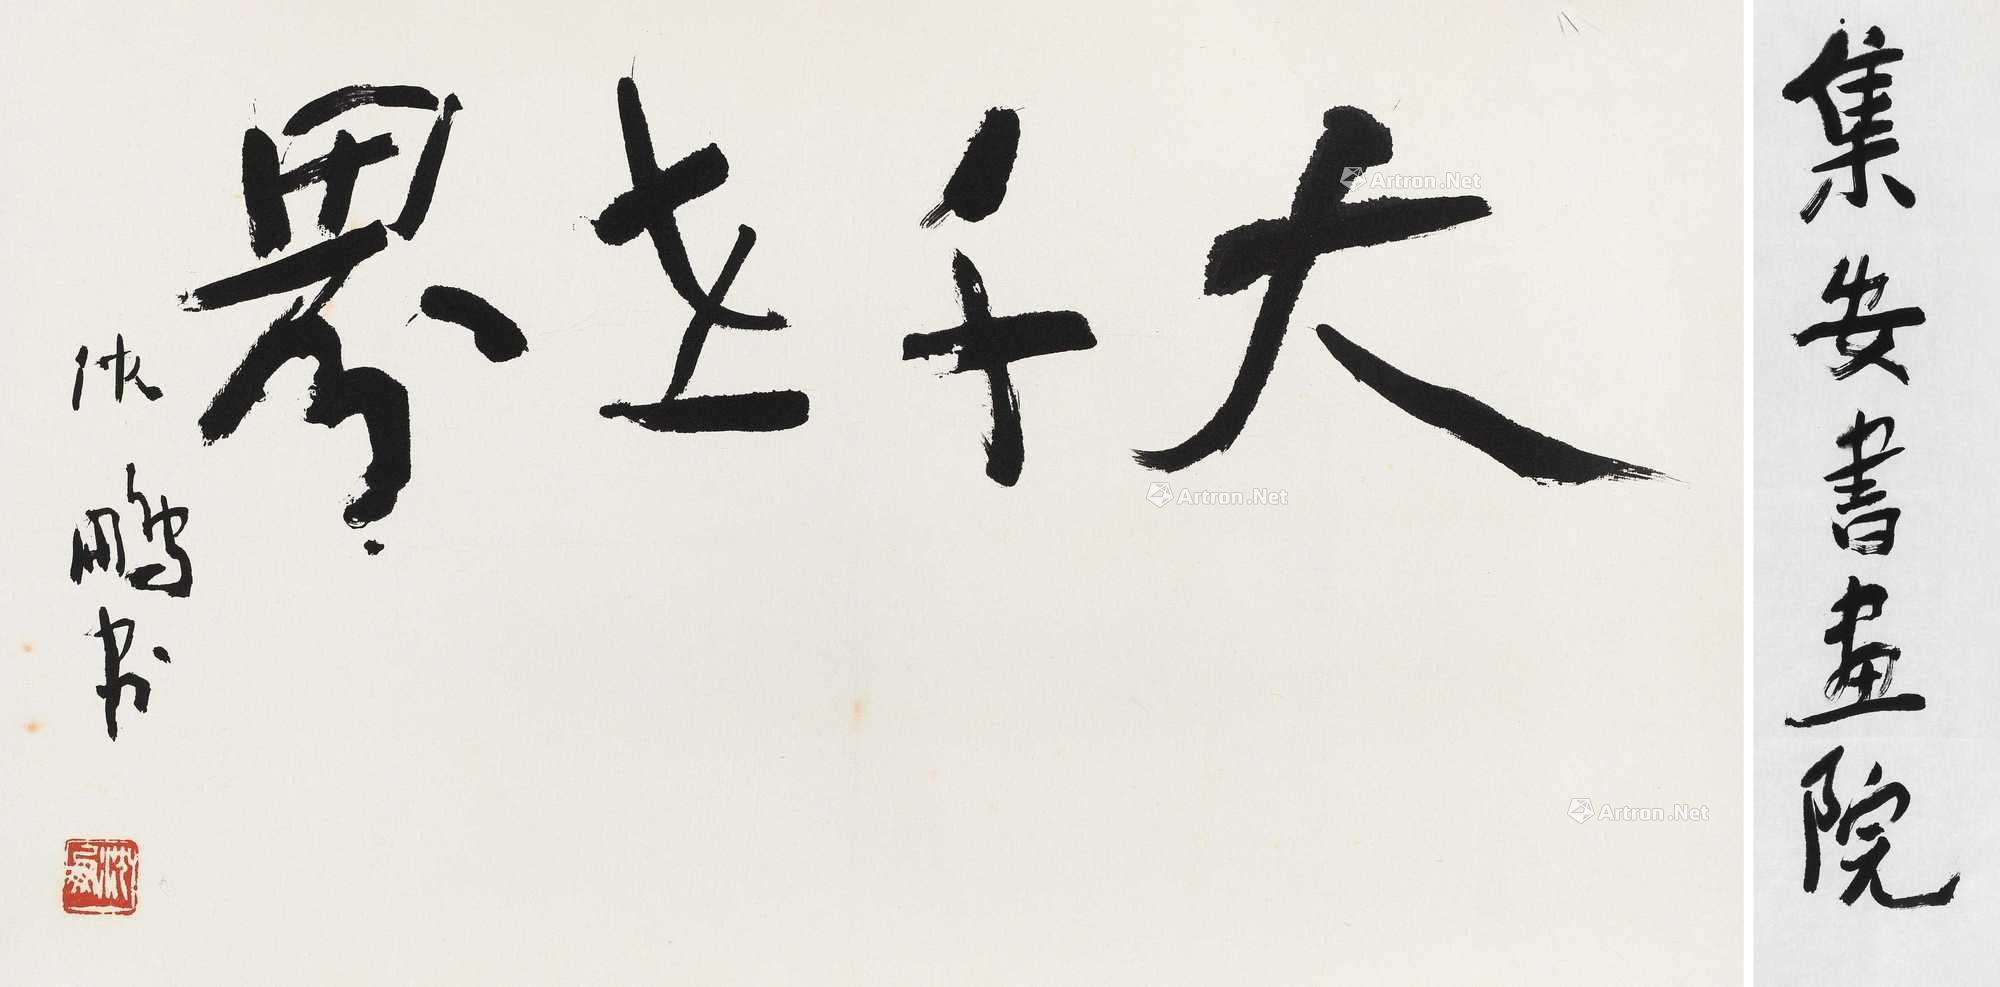 大千世界
沈鹏书
集安書画院
Artron.Net
Artron.Net
Artron.Net